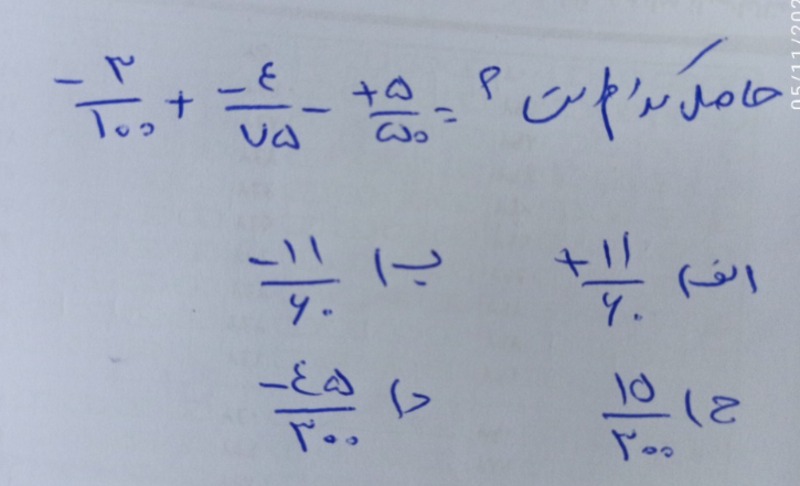 حاصل کدام است ؟ -۳/۱۰۰ + -٤/۷۵ - +۵/۵۰ =
الف) +۱۱/۶۰ ب) -۱۱/۶۰
ج) ۱۵/۳۰۰ د) -٤۵/۳۰۰
05/11/202